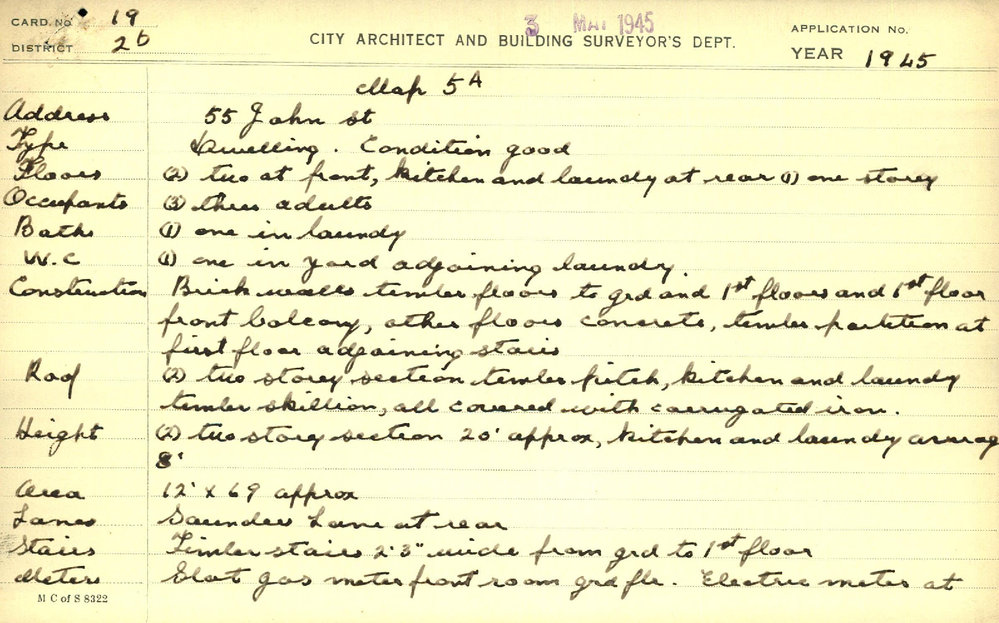 CARD. No 19
DISTRICT 2b
3 MAY 1945
CITY ARCHITECT AND BUILDING SURVEYOR'S DEPT.
APPLICATION No.
YEAR 1945
Map 5A
Address 55 John st
Type Dwelling. Condition good
Floors (2) two at front, kitchen and laundy at rear (1) one storey
Occupants (3) three adults
Baths (1) one in laundy
W.C (1) one in yard adjoining laundy.
Construction Brick walls timber floors to grd and 1st floors and 1st floor
front balcony, other floors concrete, timber partition at
first floor adjoining stairs
Roof (2) two storey section timber pitch, kitchen and laundy
timber skillion, all covered with corrugated iron.
Height (2) two storey section 20' approx, kitchen and laundy averag
8'
Area 12' x 69 approx
Lanes Saunders Lane at rear
Stairs Timber stairs 2'3" wide from grd to 1st floor
Meters Slot gas meter front room grd flr. Electric meter at
M C of S 8322